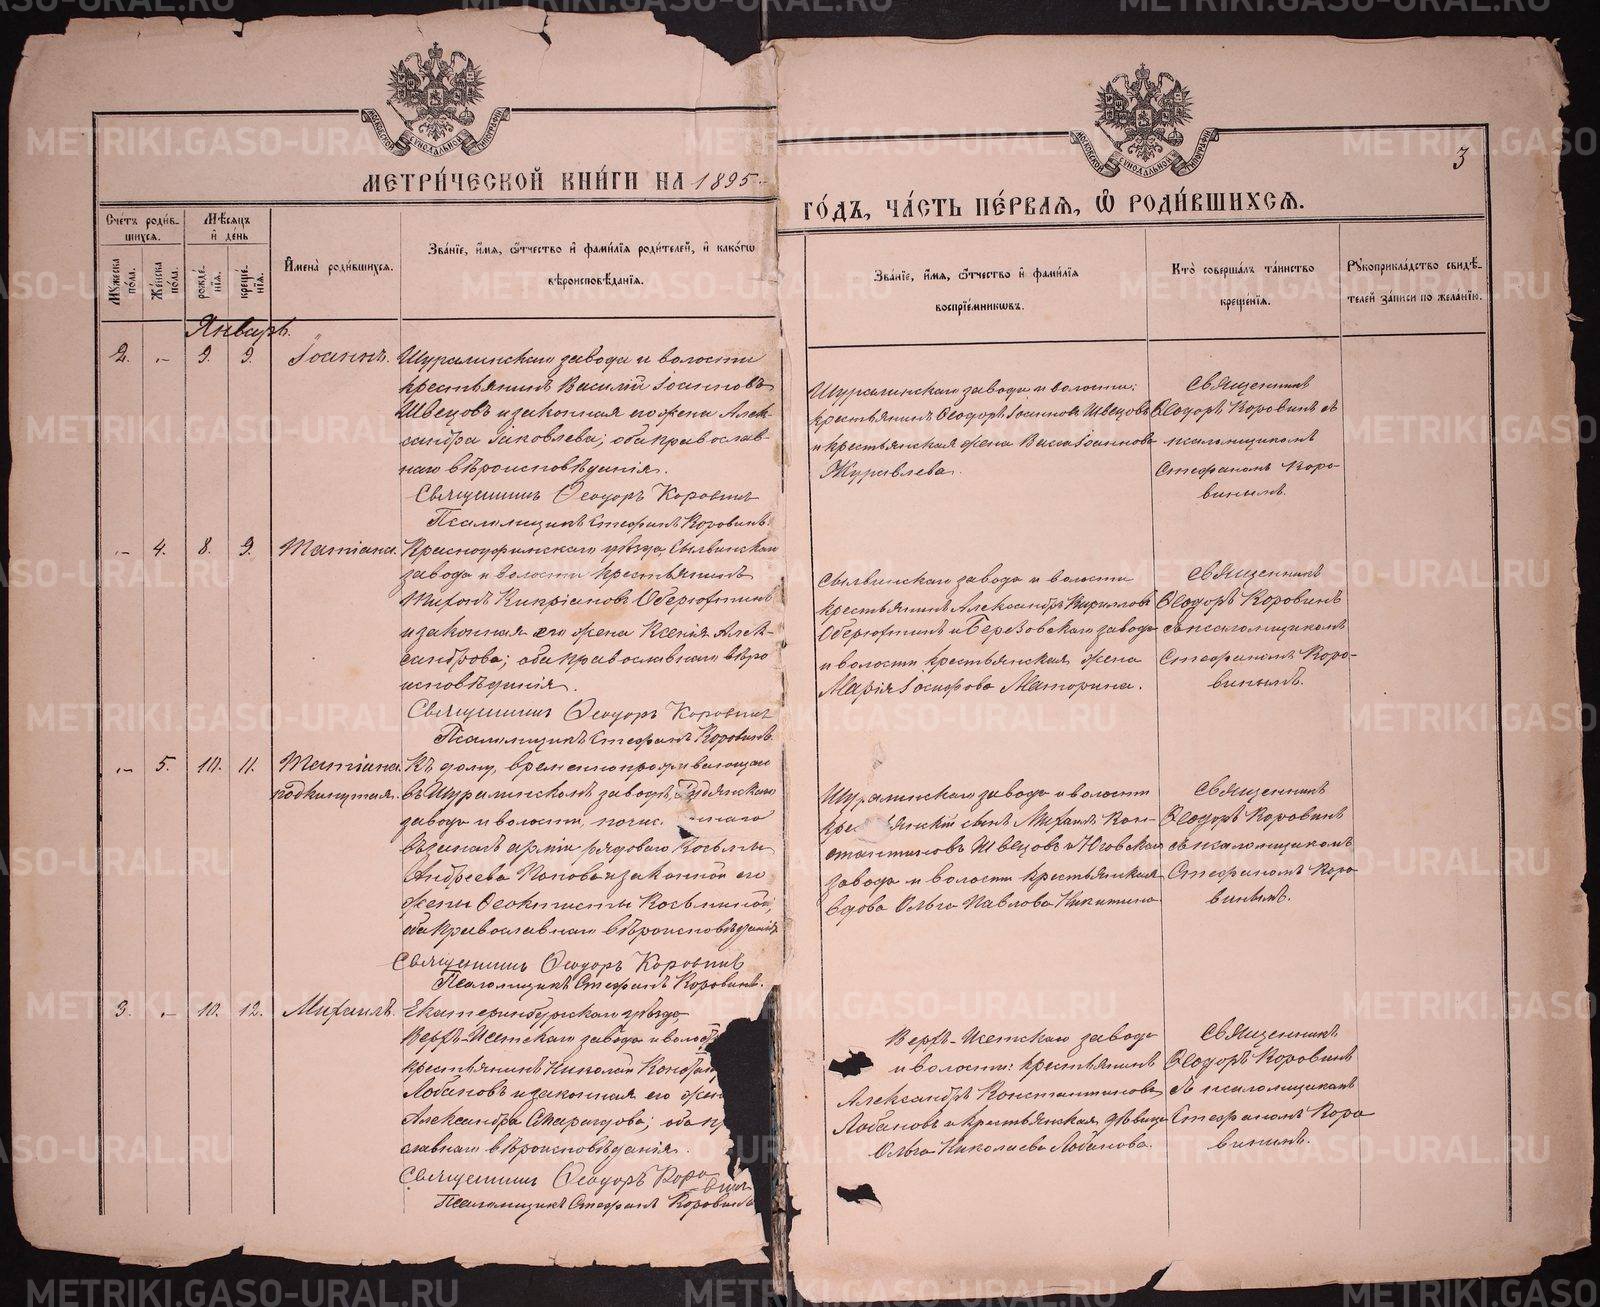 МЕТРИ́ЧЕСКОЙ КНИ́ГИ НА 1895
ГО́ДЪ, ЧА́СТЬ ПЕ́РВАЯ, Ѽ РОДИ́ВШИХСЯ.
3
Сче́тъ роди́в-
шихся.
Мѣ́сяцъ
и҆ де́нь
Му́жеска по́ла.
Же́нска по́ла.
рожде́-
нїя.
креще́-
нїя.
И҆мена̀ роди́вшихся.
Зва́нїе, и҆́мя, ѻ҆́тчество и҆ фами́лїя роди́телей, и҆ како́гѡ
вѣроисповѣ́данїя.
Зва́нїе, и҆́мя, ѻ҆́тчество и҆ фами́лїя
воспрїе́мникѡвъ.
Кто̀ соверша́лъ та́инство
креще́нїя.
Рꙋкоприкла́дство свидѣ́-
телей за́писи по жела́нїю.
Январь.
2. „ 9. 9. Іоаннъ.
Шуралинскаго завода и волости
крестьянинъ Василій Іоанновъ
Швецовъ и законная его жена Алек-
сандра Іаковлева; оба православ-
наго вѣроисповѣданія.
Священникъ Ѳеодоръ Коровинъ
Псаломщикъ Стефанъ Коровинъ.
Шуралинскаго завода и волости:
крестьянинъ Ѳеодоръ Іоанновъ Швецовъ
и крестьянская жена Васса Іоаннова
Журавлева.
Священникъ
Ѳеодоръ Коровинъ съ
псаломщикомъ
Стефаномъ Коро-
винымъ.
„ 4. 8. 9. Татіана.
Красноуфимскаго уѣзда, Сылвинскаго
завода и волости крестьянинъ
Кипріановъ Оберюхтинъ
и законная его жена Ксенія Алек-
сандрова; оба православнаго вѣро
исповѣданія.
Священникъ Ѳеодоръ Коровинъ
Псаломщикъ Стефанъ Коровинъ.
Сылвинскаго завода и волости
крестьянинъ Александръ Кирилловъ
Оберюхтинъ и Березовскаго завода
и волости крестьянская жена
Марія Іосифова Маторина.
Священникъ
Ѳеодоръ Коровинъ
съ псаломщикомъ
Стефаномъ Коро-
винымъ.
„ 5. 10. 11. Татіана
подкинутая.
Къ дому, временно проживающаго
въ Шуралинскомъ заводѣ, Рудянскаго
завода и волости,
въ запасѣ арміи рядоваго Косьмы
Андреева Попова и законной его
жены Ѳеоктисты Косьминой;
оба православнаго вѣроисповѣданія.
Священникъ Ѳеодоръ Коровинъ
Псаломщикъ Стефанъ Коровинъ.
Шуралинскаго завода и волости
сынъ Михаилъ Кон-
стантиновъ Швецовъ и Юговскаго
завода и волости крестьянская
вдова Ольга Павлова Никитина.
Священникъ
Ѳеодоръ Коровинъ
съ псаломщикомъ
Стефаномъ Коро-
винымъ.
3. „ 10. 12. Михаилъ.
Екатеринбургскаго уѣзда
Верхъ-Исетскаго завода и волос
крестьянинъ Николай
Лобановъ и законная его жен
Александра; оба пр
славнаго вѣроисповѣданія.
Священникъ Ѳеодоръ Коро
винъ
Псаломщикъ Стефанъ Коровинъ
Верхъ-Исетскаго завода
и волости: крестьянинъ
Александръ Константиновъ
Лобановъ и крестьянская дѣвица
Ольга Николаева Лобанова.
Священникъ
Ѳеодоръ Коровинъ
съ псаломщикомъ
Стефаномъ Коро
винымъ.
METRIKI.GASO-URAL.RU